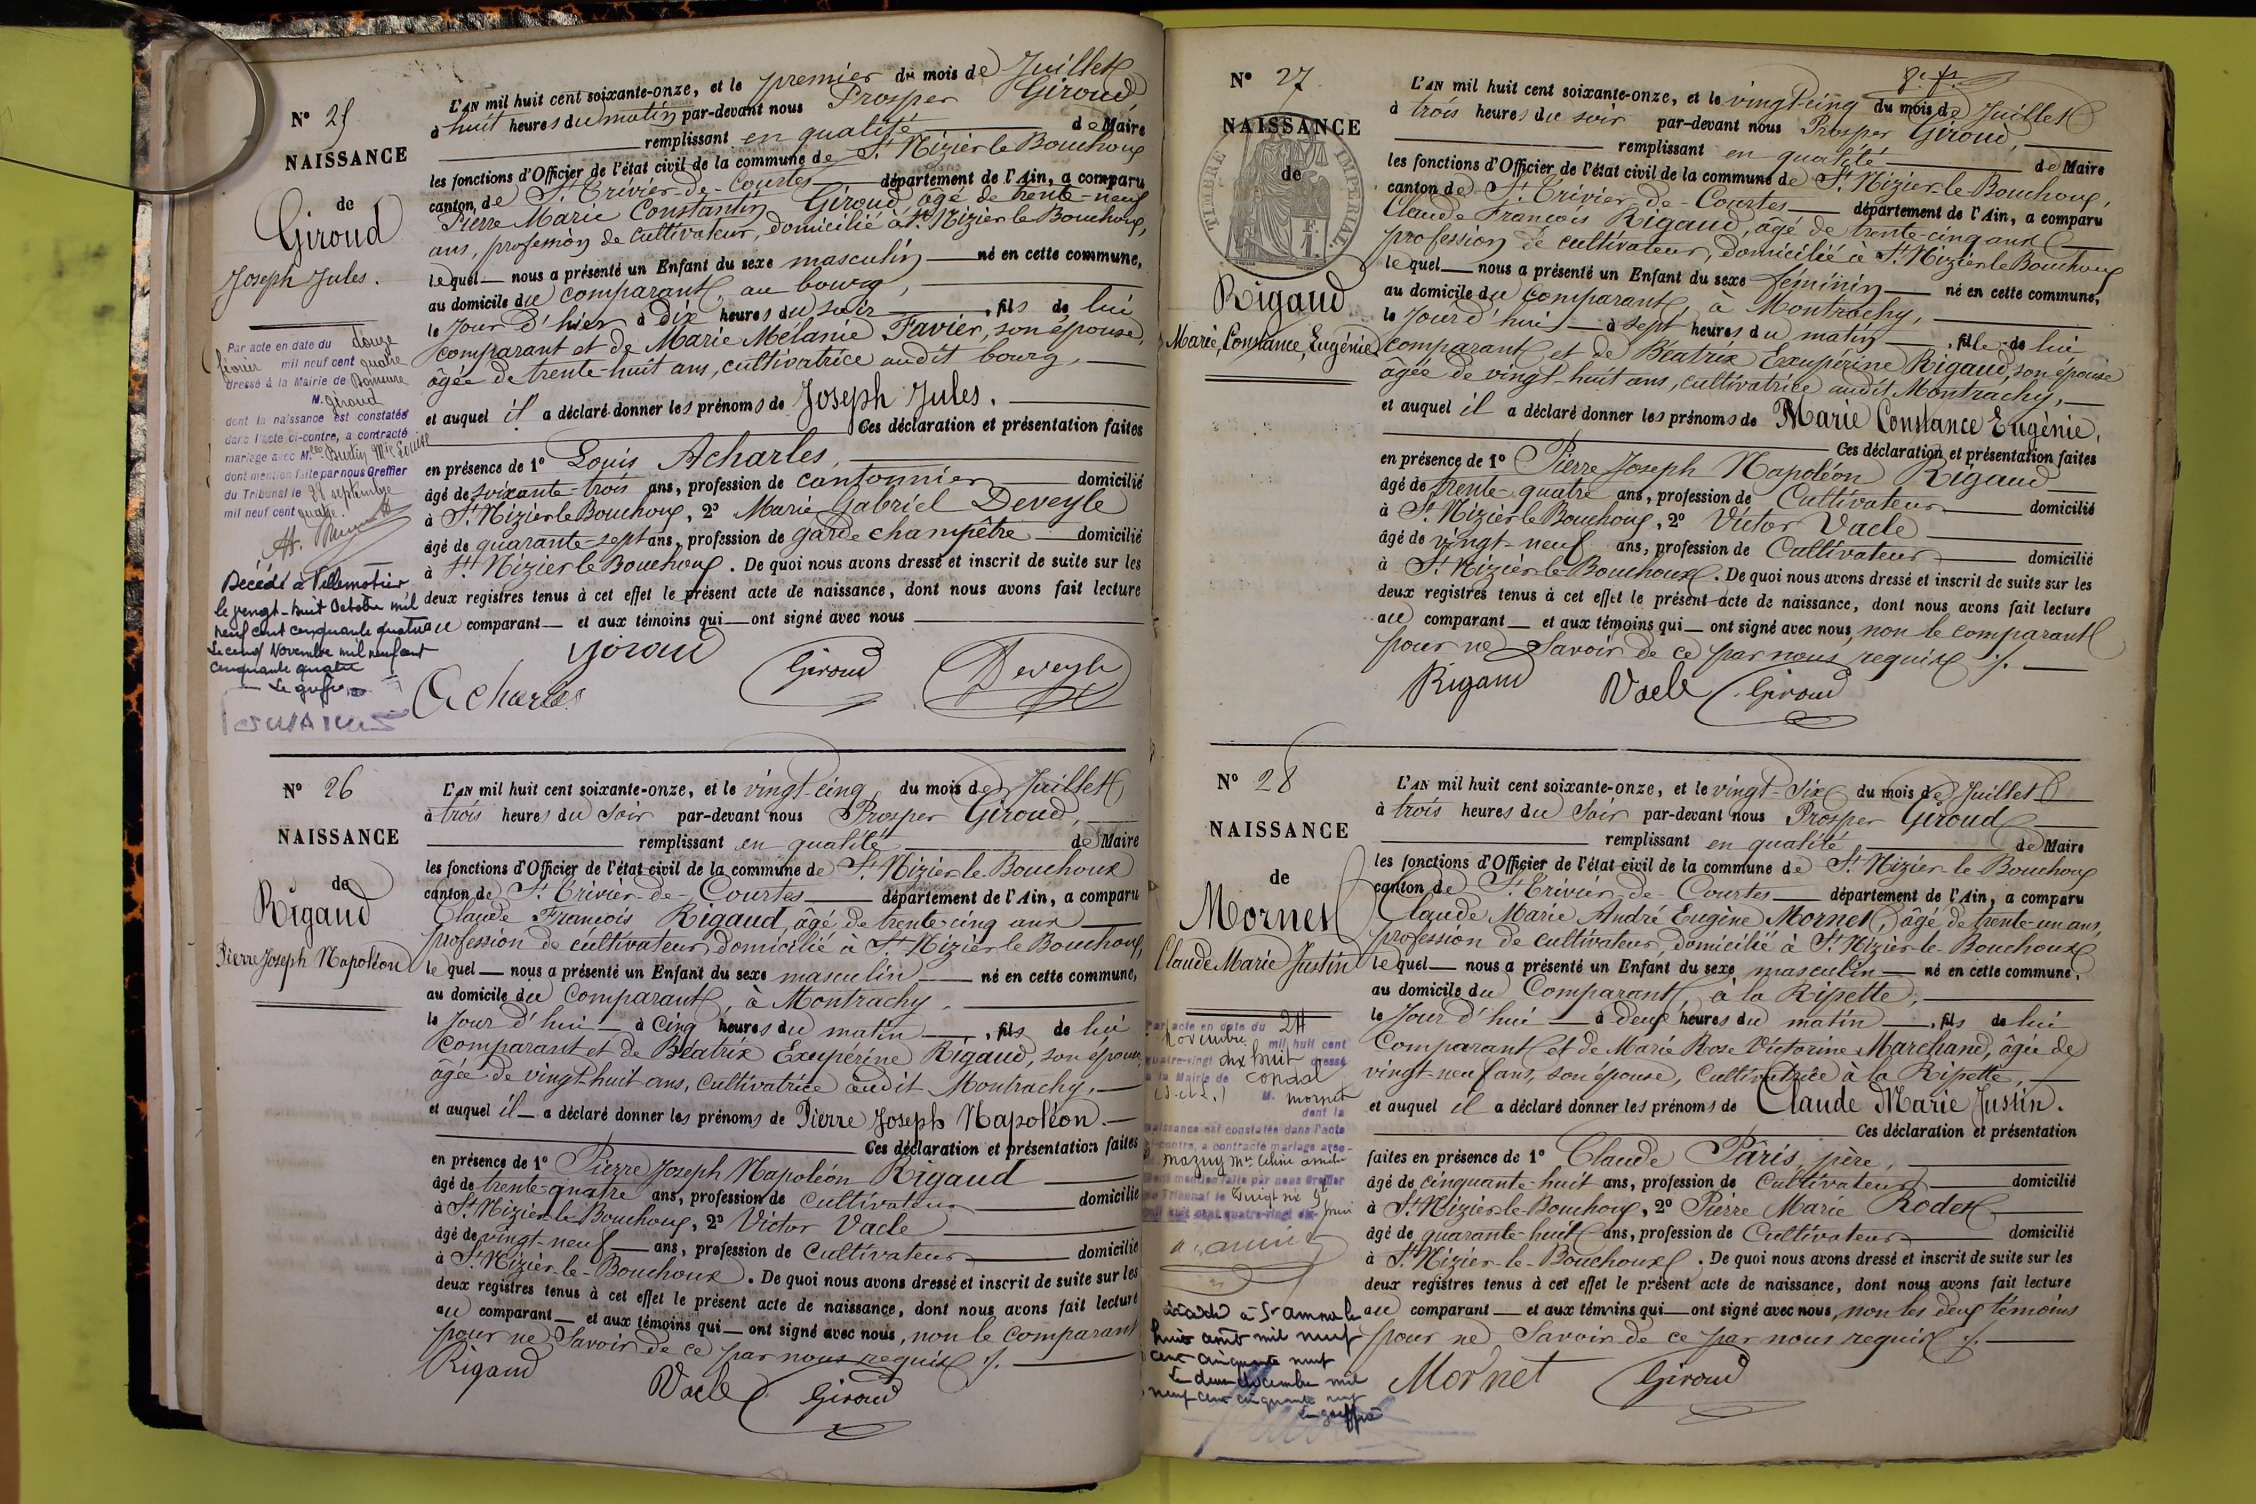 N° 25
NAISSANCE
de
Giroud
Joseph Jules.
Par acte en date du douze
février mil neuf cent quatre
dressé à la Mairie de
M. Giroud
dont la naissance est constatée
dans l'acte ci-contre, a contracté
mariage avec M.elle Burtin Mie Louise
dont mention faite par nous Greffier
du Tribunal le septembre
mil neuf cent quatre.
Décédé à Villemotier
le vingt-huit Octobre mil
neuf cent cinquante quatre
Le neuf Novembre mil neuf cent
cinquante quatre
Le greffier
L'AN mil huit cent soixante-onze, et le premier du mois de Juillet
à huit heures du matin par-devant nous Prosper Giroud,
remplissant en qualité de Maire
les fonctions d'Officier de l'état civil de la commune de St Nizier le Bouchoux
canton de St Trivier-de-Courtes département de l'Ain, a comparu
Pierre Marie Constantin Giroud, âgé de trente-neuf
ans, profession de cultivateur, domicilié à St Nizier le Bouchoux,
lequel nous a présenté un Enfant du sexe masculin né en cette commune,
au domicile du comparant, au bourg,
le Jour d'hier à dix heures du soir, fils de lui
comparant et de Marie Mélanie Favier, son épouse,
âgée de trente-huit ans, cultivatrice audit bourg,
et auquel il a déclaré donner les prénoms de Joseph Jules.
Ces déclaration et présentation faites
en présence de 1° Louis Acharles,
âgé de soixante-trois ans, profession de cantonnier domicilié
à St Nizier le Bouchoux, 2° Marie Gabriel Deveyle
âgé de quarante-sept ans, profession de garde champêtre domicilié
à St Nizier le Bouchoux. De quoi nous avons dressé et inscrit de suite sur les
deux registres tenus à cet effet le présent acte de naissance, dont nous avons fait lecture
au comparant et aux témoins qui ont signé avec nous
Giroud
Acharles Giroud Deveyle
N° 26
NAISSANCE
de
Rigaud
Pierre Joseph Napoléon
L'AN mil huit cent soixante-onze, et le vingt-cinq du mois de Juillet
à trois heures du Soir par-devant nous Prosper Giroud,
remplissant en qualité de Maire
les fonctions d'Officier de l'état civil de la commune de St Nizier le Bouchoux
canton de St Trivier-de-Courtes département de l'Ain, a comparu
Claude François Rigaud, âgé de trente-cinq ans
profession de cultivateur, domicilié à St Nizier le Bouchoux,
lequel nous a présenté un Enfant du sexe masculin né en cette commune,
au domicile du Comparant, à Montrachy,
le Jour d'hui à Cinq heures du matin, fils de lui
comparant et de Béatrix Exupérine Rigaud, son épouse,
âgée de vingt-huit ans, cultivatrice audit Montrachy,
et auquel il a déclaré donner les prénoms de Pierre Joseph Napoléon.
Ces déclaration et présentation faites
en présence de 1° Pierre Joseph Napoléon Rigaud
âgé de trente-quatre ans, profession de cultivateur domicilié
à St Nizier le Bouchoux, 2° Victor Vacle
âgé de vingt-neuf ans, profession de Cultivateur domicilié
à St Nizier-le-Bouchoux. De quoi nous avons dressé et inscrit de suite sur les
deux registres tenus à cet effet le présent acte de naissance, dont nous avons fait lecture
au comparant et aux témoins qui ont signé avec nous, non le comparant
pour ne Savoir de ce par nous requis %.
Rigaud Vacle Giroud
N° 27
NAISSANCE
de
TIMBRE IMPÉRIAL.
F.
1.
Rigaud
Marie, Constance, Eugénie
L'AN mil huit cent soixante-onze, et le vingt-cinq du mois de Juillet
à trois heures du soir par-devant nous Prosper Giroud,
remplissant en qualité de Maire
les fonctions d'Officier de l'état civil de la commune de St Nizier-le-Bouchoux,
canton de St Trivier-de-Courtes département de l'Ain, a comparu
Claude François Rigaud, âgé de trente-cinq ans
profession de cultivateur, domicilié à St Nizier le Bouchoux
lequel nous a présenté un Enfant du sexe féminin né en cette commune,
au domicile du Comparant, à Montrachy,
le Jour d'hui à sept heures du matin, fille de lui
comparant et de Béatrix Exupérine Rigaud, son épouse
âgée de vingt-huit ans, cultivatrice audit Montrachy,
et auquel il a déclaré donner les prénoms de Marie Constance Eugénie,
Ces déclaration et présentation faites
en présence de 1° Pierre Joseph Napoléon Rigaud
âgé de trente-quatre ans, profession de Cultivateur domicilié
à St Nizier le Bouchoux, 2° Victor Vacle
âgé de vingt-neuf ans, profession de Cultivateur domicilié
à St Nizier-le-Bouchoux. De quoi nous avons dressé et inscrit de suite sur les
deux registres tenus à cet effet le présent acte de naissance, dont nous avons fait lecture
au comparant et aux témoins qui ont signé avec nous non le comparant
pour ne Savoir de ce par nous requis %.
Rigaud Vacle Giroud
N° 28
NAISSANCE
de
Mornet
Claude Marie Justin
Par acte en date du 24
Novembre mil huit cent
quatre-vingt dix huit dressé
à la Mairie de Condal
(S.et L.) M. Mornet
dont la
naissance est constatée dans l'acte
ci-contre, a contracté mariage avec
Mazuy Mie Céline
dont mention faite par nous Greffier
du Tribunal le vingt six
mil huit cent quatre-vingt dix
décédé à St Amour le
huit août mil neuf
cent cinquante neuf
Le deux décembre mil
neuf cent cinquante neuf
Le greffier
L'AN mil huit cent soixante-onze, et le vingt-Six du mois de Juillet
à trois heures du Soir par-devant nous Prosper Giroud
remplissant en qualité de Maire
les fonctions d'Officier de l'état civil de la commune de St Nizier le Bouchoux
canton de St Trivier-de-Courtes département de l'Ain, a comparu
Claude Marie André Eugène Mornet, âgé de trente-un ans,
profession de cultivateur, domicilié à St Nizier-le-Bouchoux
lequel nous a présenté un Enfant du sexe masculin né en cette commune,
au domicile du Comparant, à la Ripette,
le Jour d'hui à deux heures du matin, fils de lui
Comparant et de Marie Rose Victorine Marchand, âgée de
vingt-neuf ans, son épouse, Cultivatrice à la Ripette,
et auquel il a déclaré donner les prénoms de Claude Marie Justin.
Ces déclaration et présentation
faites en présence de 1° Claude Pâris, père,
âgé de cinquante-huit ans, profession de Cultivateur domicilié
à St Nizier-le-Bouchoux, 2° Pierre Marie Rodet
âgé de quarante-huit ans, profession de Cultivateur domicilié
à St Nizier-le-Bouchoux. De quoi nous avons dressé et inscrit de suite sur les
deux registres tenus à cet effet le présent acte de naissance, dont nous avons fait lecture
au comparant et aux témoins qui ont signé avec nous, non les deux témoins
pour ne Savoir de ce par nous requis %.
Mornet Giroud